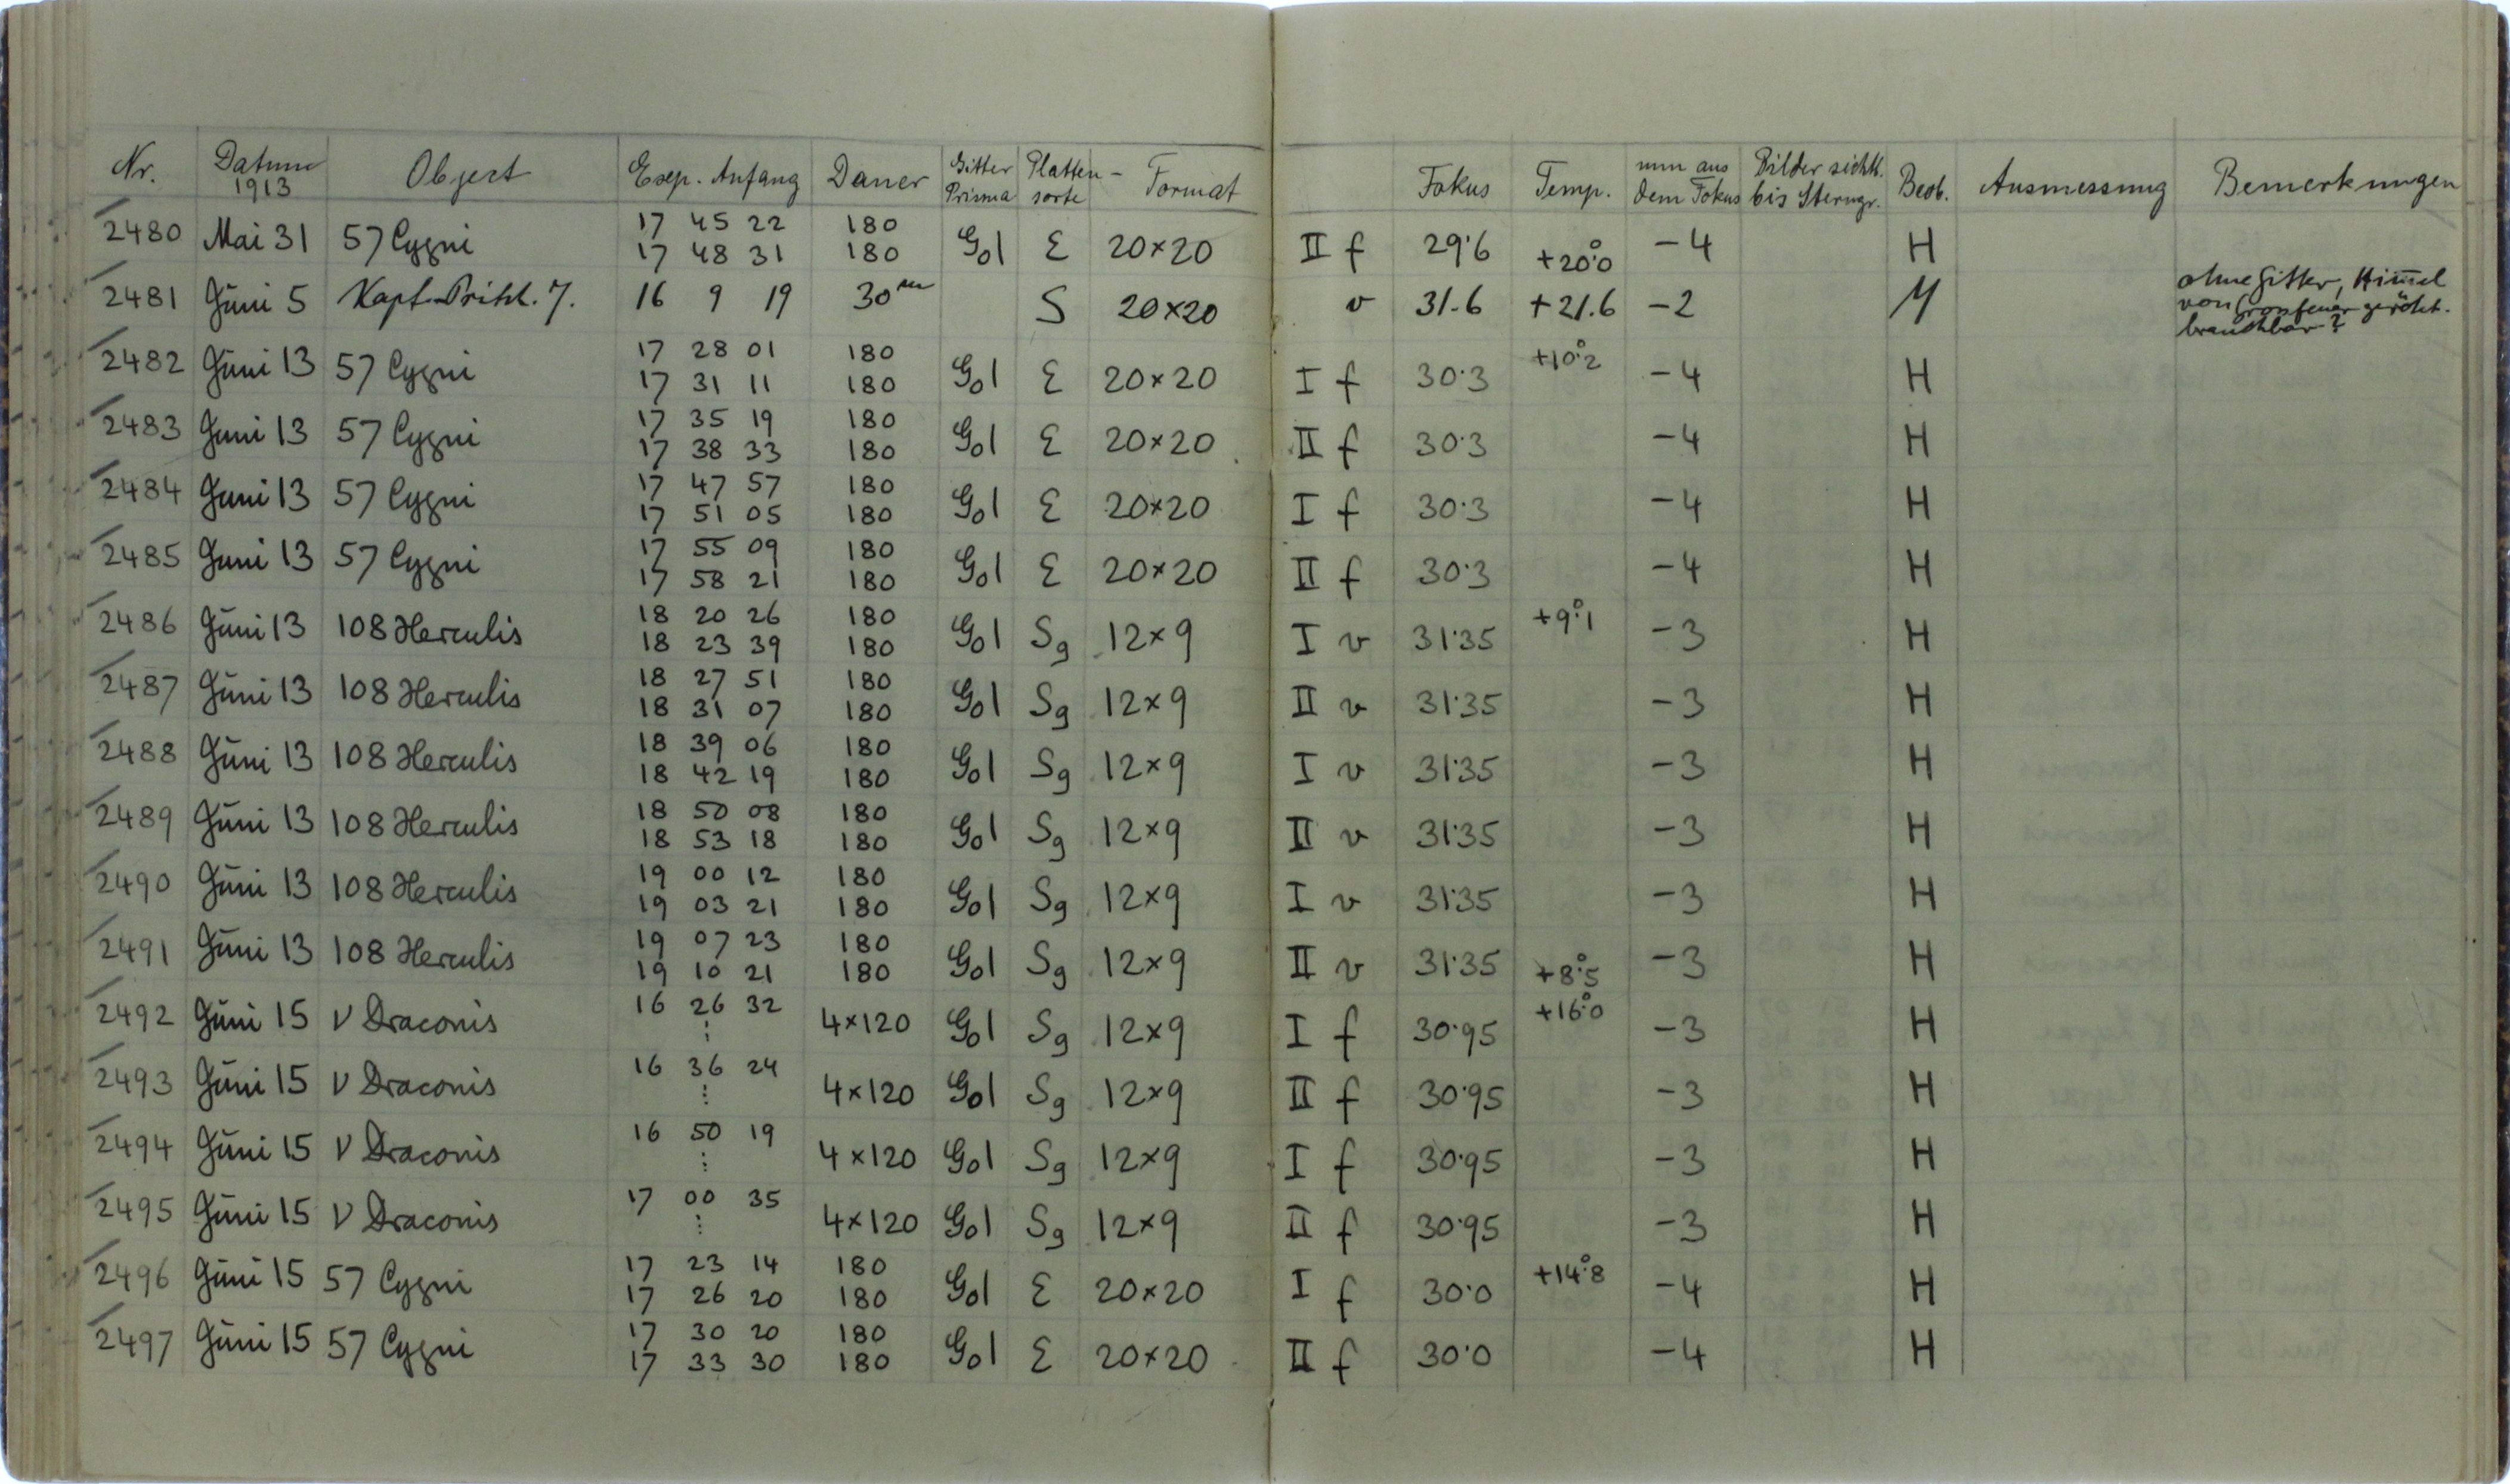 Nr. Datum 1913 Object Exp. Anfang Dauer Gitter Prisma Platten-sorte Format Fokus Temp. mm aus dem Fokus Bilder sichtb. bis Sterngr. Beob. Ausmessung Bemerkungen
2480 Mai 31 57 Cygni 17 45 22 180 G01 E 20×20 II f 29·6 +20°.0 -4 H
17 48 31 180
2481 Juni 5 16 9 19 30m S 20×20 v 31.6 +21.6 -2 ohne Gitter, Himmel
von Grossfeuer gerötet.
brauchbar?
2482 Juni 13 57 Cygni 17 28 01 180 G01 E 20×20 I f 30·3 +10°.2 -4 H
17 31 11 180
2483 Juni 13 57 Cygni 17 35 19 180 G01 E 20×20 II f 30·3 -4 H
17 38 33 180
2484 Juni 13 57 Cygni 17 47 57 180 G01 E 20×20 I f 30·3 -4 H
17 51 05 180
2485 Juni 13 57 Cygni 17 55 09 180 G01 E 20×20 II f 30·3 -4 H
17 58 21 180
2486 Juni 13 108 Herculis 18 20 26 180 G01 Sg 12×9 I v 31·35 +9°.1 -3 H
18 23 39 180
2487 Juni 13 108 Herculis 18 27 51 180 G01 Sg 12×9 II v 31·35 -3 H
18 31 07 180
2488 Juni 13 108 Herculis 18 39 06 180 G01 Sg 12×9 I v 31·35 -3 H
18 42 19 180
2489 Juni 13 108 Herculis 18 50 08 180 G01 Sg 12×9 II v 31·35 -3 H
18 53 18 180
2490 Juni 13 108 Herculis 19 00 12 180 G01 Sg 12×9 I v 31·35 -3 H
19 03 21 180
2491 Juni 13 108 Herculis 19 07 23 180 G01 Sg 12×9 II v 31·35 +8°.5 -3 H
19 10 21 180
2492 Juni 15 ν Draconis 16 26 32 4×120 G01 Sg 12×9 I f 30·95 +16°.0 -3 H
2493 Juni 15 ν Draconis 16 36 24 4×120 G01 Sg 12×9 II f 30·95 -3 H
2494 Juni 15 ν Draconis 16 50 19 4×120 G01 Sg 12×9 I f 30·95 -3 H
2495 Juni 15 ν Draconis 17 00 35 4×120 G01 Sg 12×9 II f 30·95 -3 H
2496 Juni 15 57 Cygni 17 23 14 180 G01 E 20×20 I f 30·0 +14°.8 -4 H
17 26 20 180
2497 Juni 15 57 Cygni 17 30 20 180 G01 E 20×20 II f 30·0 -4 H
17 33 30 180